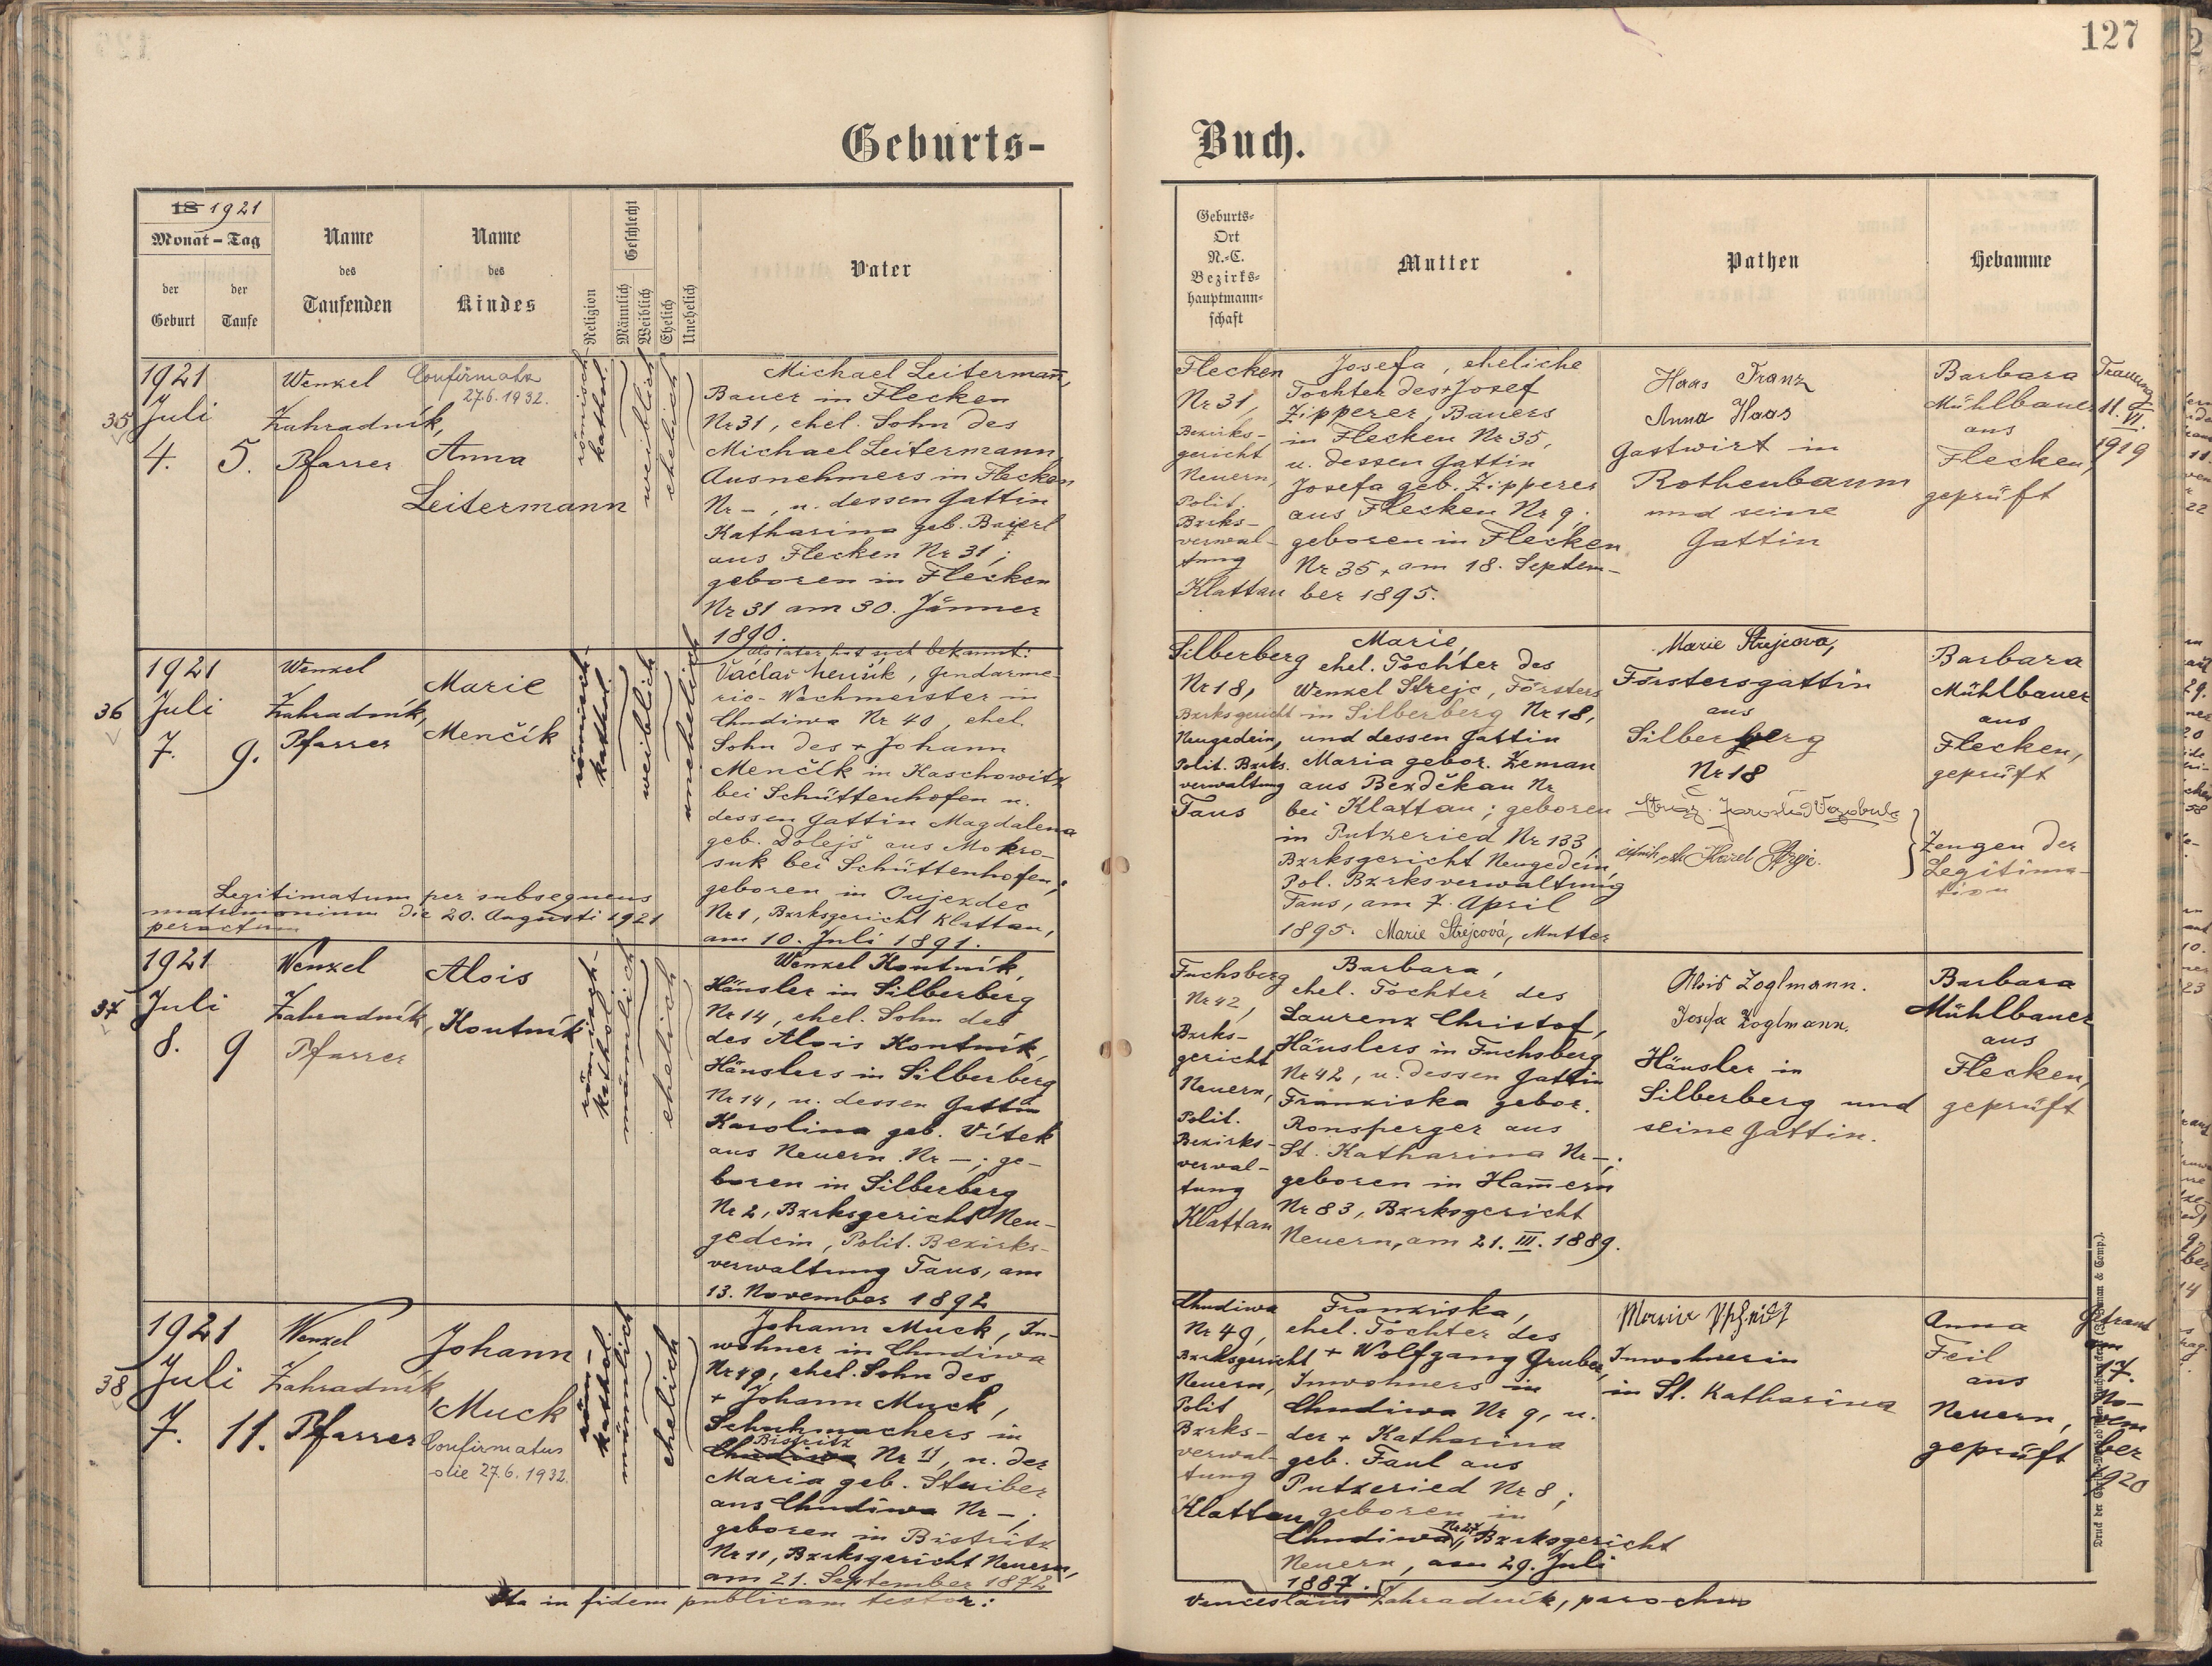 127
Geburts-
Buch.
18 1921
Monat - Tag
der
Geburt
der
Taufe
Name
des
Taufenden
Name
des
Kindes
Religion
Geschlecht
Männlich
Weiblich
Ehelich
Unehelich
Vater
Geburts-
Ort
N.-C.
Bezirks-
hauptmann-
schaft
Mutter
Pathen
Hebamme
35
1921
Juli
4.
5.
Wenzel
Zahradník,
Pfarrer
27.6.1932.
Anna
Leitermann
römisch-
kathol.
weiblich
ehelich
Michael Leitermañ,
Bauer in Flecken
Nr 31, ehel. Sohn des
Michael Leitermann,
Ausnehmers in Flecken
Nr -, u. dessen Gattin
Katharina geb. Baierl
aus Flecken Nr 31;
geboren in Flecken
Nr 31 am 30. Jänner
1890.
Flecken
Nr 31,
Bezirks-
gericht
Neuern,
Polit.
Bzrks-
verwal-
tung
Klattau
Josefa, eheliche
Tochter des + Josef
Zipperer, Bauers
in Flecken Nr 35,
u. dessen Gattin
Josefa geb. Zipperer
aus Flecken Nr 9.
geboren in Flecken
Nr 35, am 18. Septem-
ber 1895.
Haas Franz
Anna Haas
Gastwirt in
Rothenbaum
und seine
Gattin
Barbara
Mühlbauer
aus
Flecken,
geprüft
Trauung
11. VI.
1919
36
1921
Juli
7.
9.
Wenzel
Zahradník,
Pfarrer
Marie
Menčík
römisch-
kathol.
weiblich
unehelich
als Vater hat sich bekannt:
Václav Menčík, Gendarme-
rie-Wachmeister in
Chudiwa Nr 40, ehel.
Sohn des + Johann
Menčík in Kaschowitz
bei Schüttenhofen u.
dessen Gattin Magdalena
geb. Dolejš aus Mokro-
suk bei Schüttenhofen;
geboren in Oujezdec
Nr 1, Bzrksgericht Klattau,
am 10. Juli 1891.
Legitimatum per subsequens
matrimonium die 20. Augusti 1921
peractum
Silberberg
Nr 18,
Bzrksgericht
Neugedein,
Polit. Bzrks.
verwaltung
Taus
Marie,
ehel. Tochter des
Wenzel Strejc, Försters
in Silberberg Nr 18,
und dessen Gattin
Maria gebor. Zeman
aus Bezděkau Nr
bei Klattau; geboren
in Putzeried Nr 133,
Bzrksgericht Neugedein,
Pol. Bzrksverwaltung
Taus, am 7. April
1895. Marie Strejcová, Mutter
Marie Strejcová,
Förstersgattin
aus
Silberberg
Nr 18
Barbara
Mühlbauer
aus
Flecken,
geprüft
Zeugen der
Legitima-
tion
37
1921
Juli
8.
9
Wenzel
Zahradník,
Pfarrer
Alois
Koutník
römisch-
kathol.
männlich
ehelich
Wenzel Koutník,
Häusler in Silberberg
Nr 14, ehel. Sohn des
des Alois Koutník,
Häuslers in Silberberg
Nr 14, u. dessen Gattin
Karolina geb. Vítek
aus Neuern Nr -; ge-
boren in Silberberg
Nr 2, Bzrksgericht Neu-
gedein, Polit. Bezirks-
verwaltung Taus, am
13. November 1892
Fuchsberg
Nr 42,
Bzrks-
gericht
Neuern,
Polit.
Bezirks-
verwal-
tung
Klattau
Barbara,
ehel. Tochter des
Laurenz Christof,
Häuslers in Fuchsberg
Nr 42, u. dessen Gattin
Franziska gebor.
Ronsperger aus
St. Katharina Nr -;
geboren in Ham̄ern
Nr 83, Bzrksgericht
Neuern, am 21. III. 1889.
Alois Zoglmann.
Josefa Zoglmann.
Häusler in
Silberberg und
seine Gattin.
Barbara
Mühlbauer
aus
Flecken,
geprüft
38
1921
Juli
7.
11.
Wenzel
Zahradník
Pfarrer
Johann
Muck
Confirmatus
die 27.6.1932.
röm-
kathol.
männlich
ehelich
Johann Muck, In-
wohner in Chudiwa
Nr 49, ehel. Sohn des
+ Johann Muck,
Schuhmachers in
Bistritz
Chudiwa Nr 11, u. der
Maria geb. Stuiber
aus Chudiwa Nr -;
geboren in Bistritz
Nr 11, Bzrksgericht Neuern,
am 21. September 1872
Chudiwa
Nr 49,
Bzrksgericht
Neuern,
Polit
Bzrks-
verwal-
tung
Klattau
Franziska,
ehel. Tochter des
+ Wolfgang Gruber,
Inwohners in
Chudiwa Nr 9, u.
der + Katharina
geb. Faul aus
Putzeried Nr 8;
geboren in
Chudiwa, Nr 27, Bzrksgericht
Neuern, am 29. Juli
1887.
Inwohnerin
in St. Katharina
Anna
Feil
aus
Neuern,
geprüft
Getraut
am
17.
No-
vem
ber
1920
Ita in fidem publicam testor:
Venceslaus Zahradník, parochus